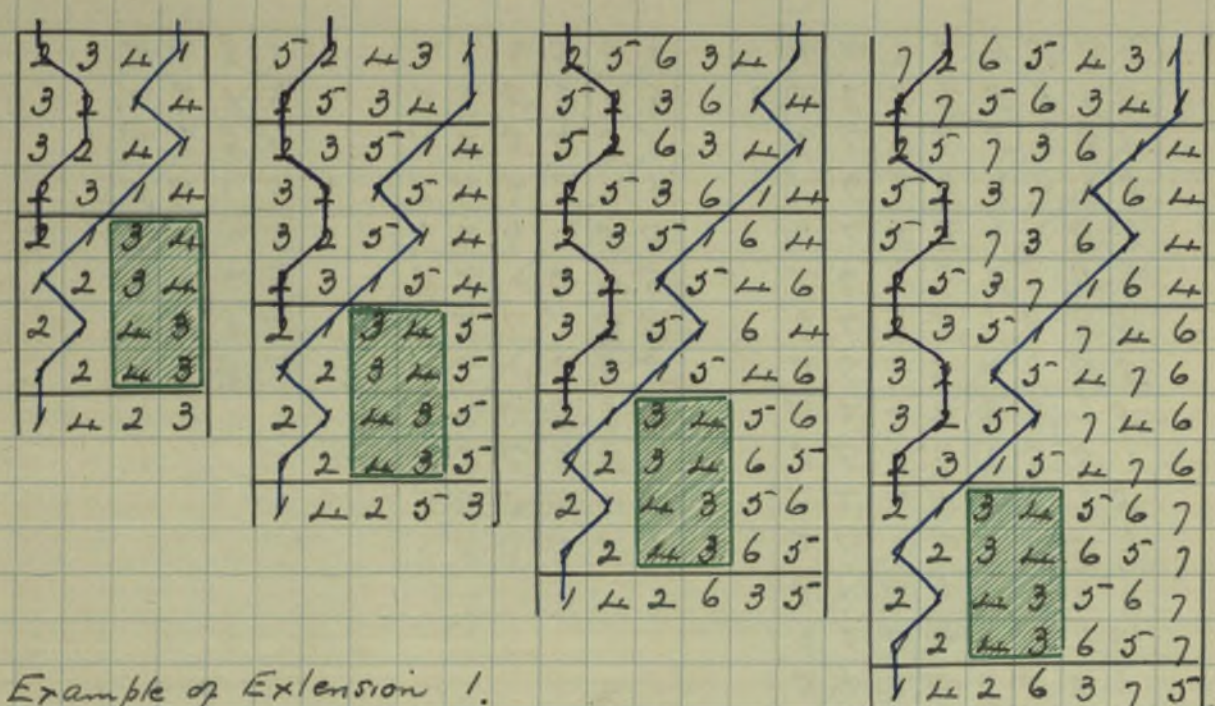 2 3 4 1
3 2 1 4
3 2 4 1
2 3 1 4
2 1 3 4
1 2 3 4
2 1 4 3
1 2 4 3
1 4 2 3
5 2 4 3 1
2 5 3 4 1
2 3 5 1 4
3 2 1 5 4
3 2 5 1 4
2 3 1 5 4
2 1 3 4 5
1 2 3 4 5
2 1 4 3 5
1 2 4 3 5
1 4 2 5 3
2 5 6 3 4 1
5 2 3 6 1 4
5 2 6 3 4 1
2 5 3 6 1 4
2 3 5 1 6 4
3 2 1 5 4 6
3 2 5 1 6 4
2 3 1 5 4 6
2 1 3 4 5 6
1 2 3 4 6 5
2 1 4 3 5 6
1 2 4 3 6 5
1 4 2 6 3 5
7 2 6 5 4 3 1
2 7 5 6 3 4 1
2 5 7 3 6 1 4
5 2 3 7 1 6 4
5 2 7 3 6 1 4
2 5 3 7 1 6 4
2 3 5 1 7 4 6
3 2 1 5 4 7 6
3 2 5 1 7 4 6
2 3 1 5 4 7 6
2 1 3 4 5 6 7
1 2 3 4 6 5 7
2 1 4 3 5 6 7
1 2 4 3 6 5 7
1 4 2 6 3 7 5
Example of Extension 1.